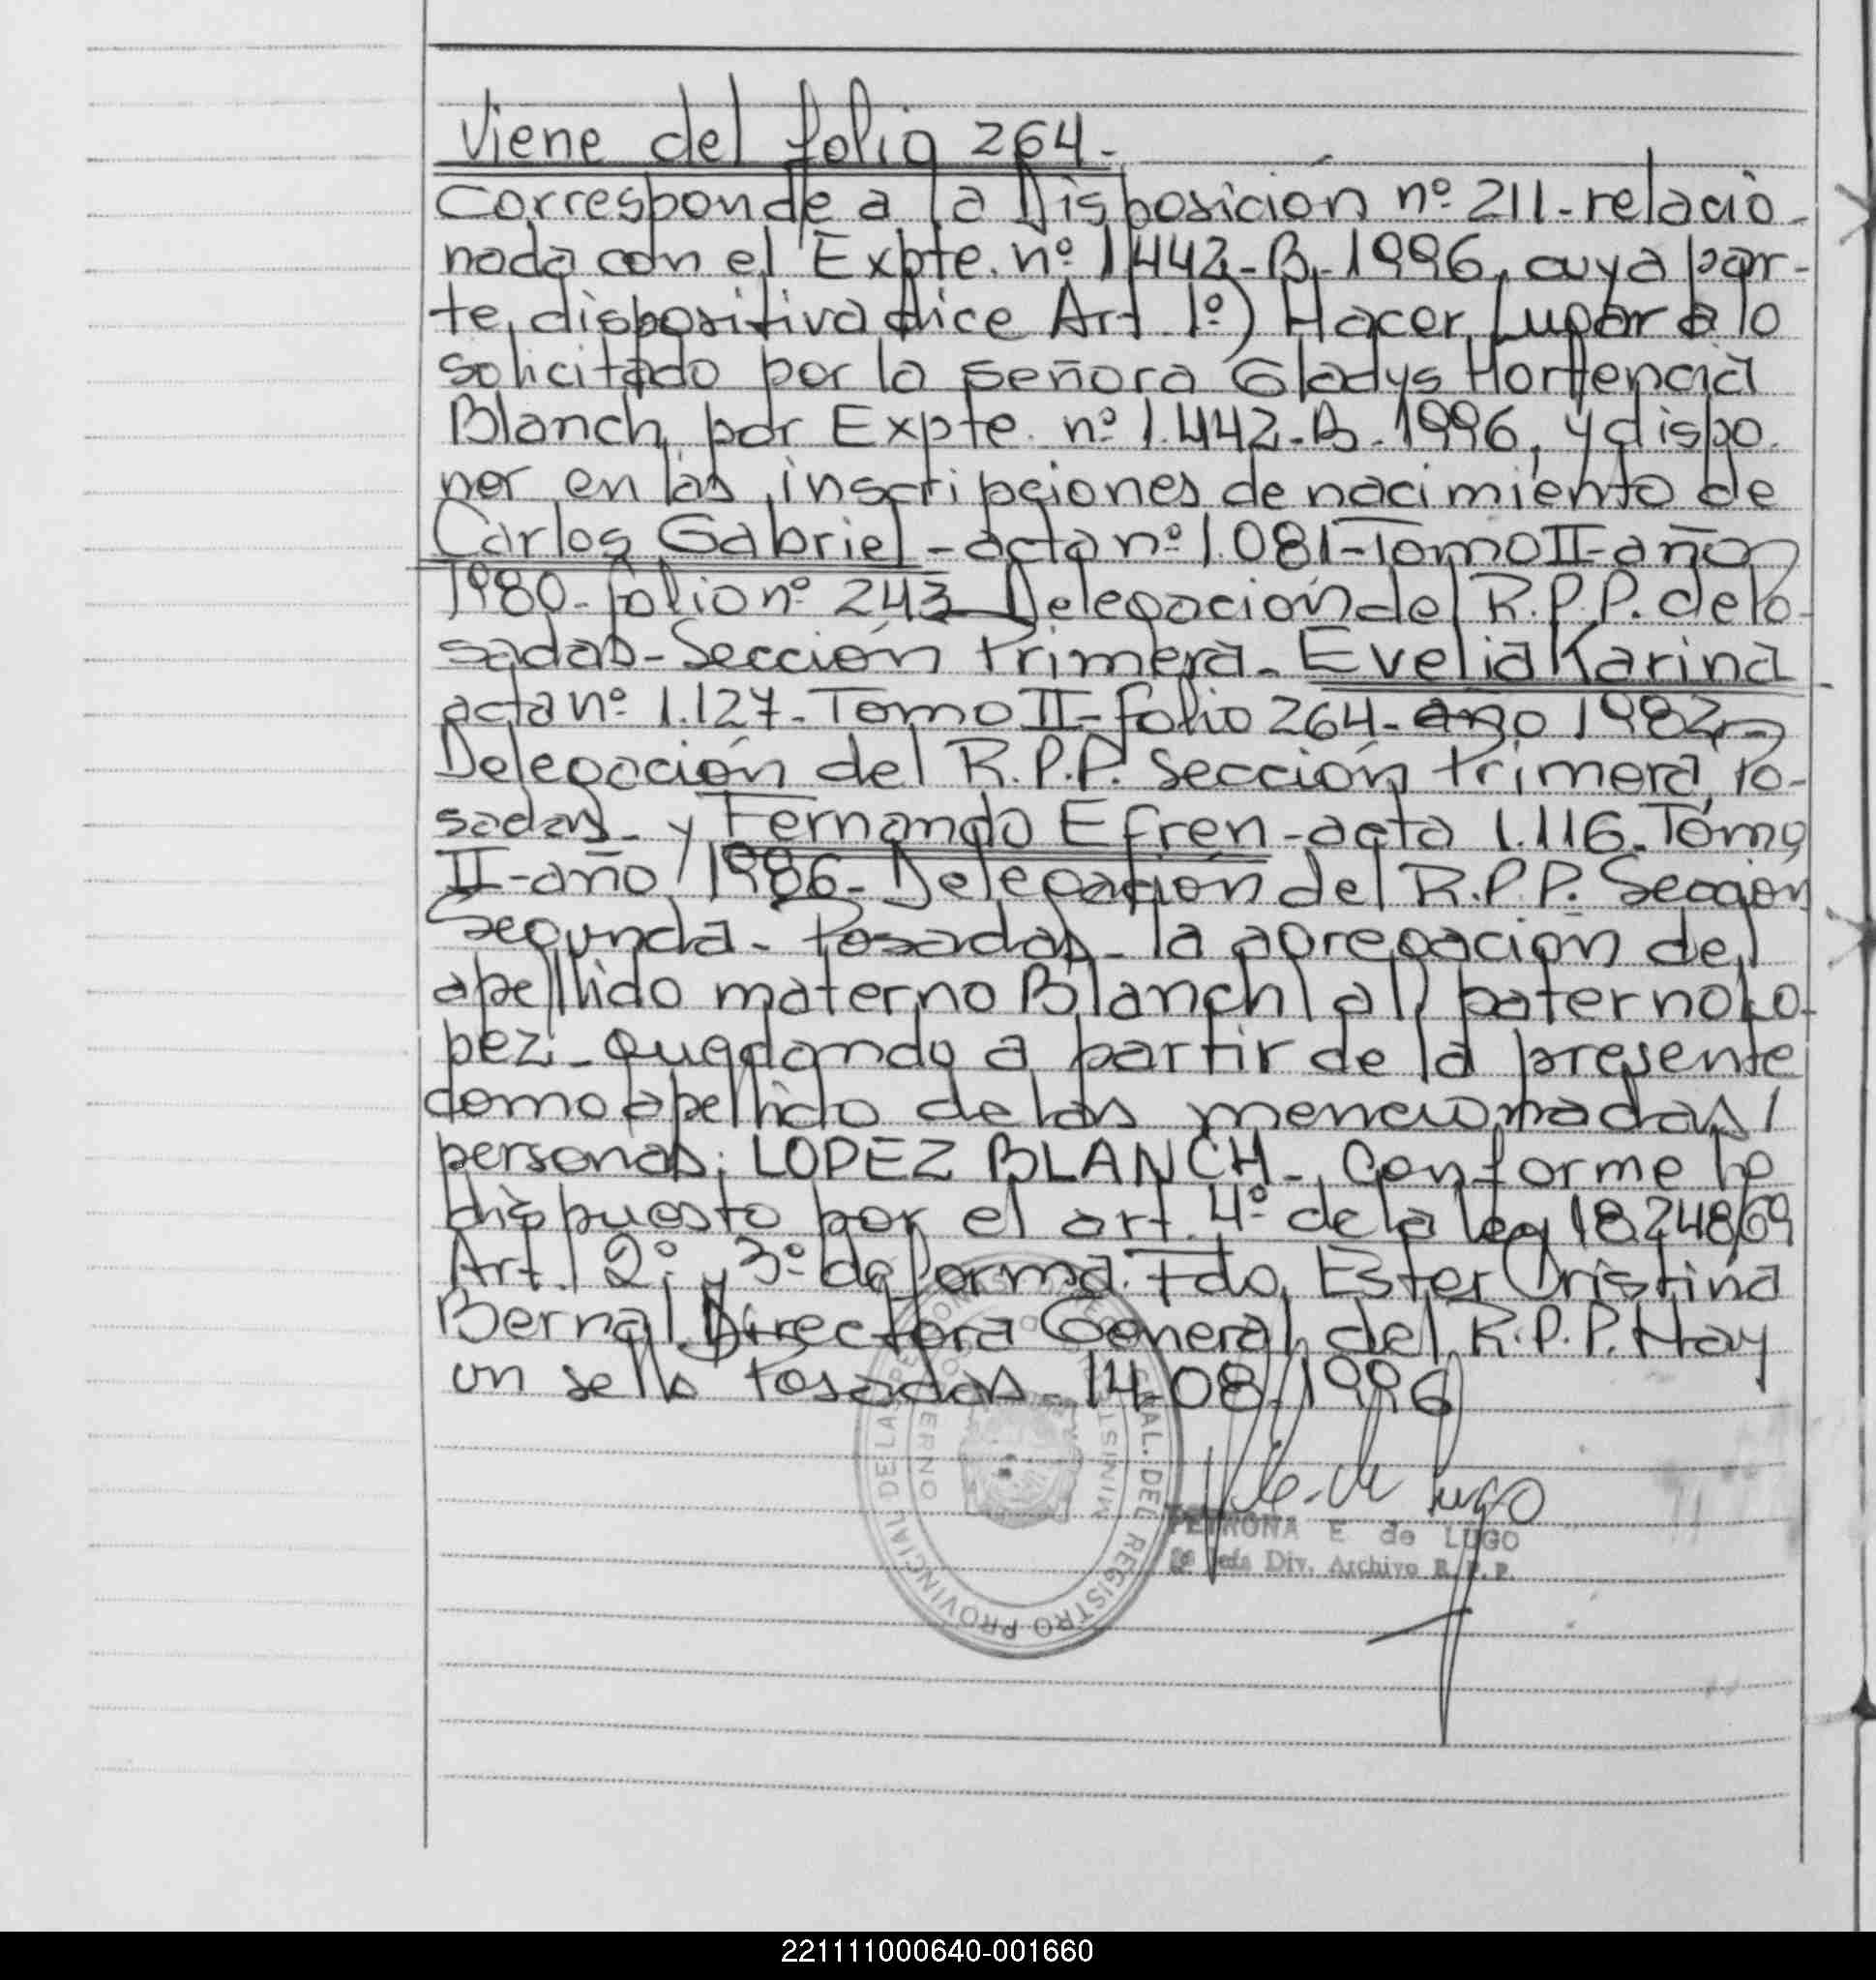 Viene del folio 264.-
Corresponde a la Disposición nº 211- relacio-
nada con el Expte. nº 1442-B-1996, cuya par-
te dispositiva dice Art 1º) Hacer Lugar a lo
solicitado por la señora Gladys Hortencia
Blanch por Expte. nº 1.442-B-1996, y dispo-
ner en las inscripciones de nacimiento de
Carlos Gabriel - acta nº 1.081-Tomo II-año
1980-folio nº 243 Delegación del R.P.P. de Po-
sadas-Sección Primera- Evelia Karina
acta nº 1.127-Tomo II-folio 264-año 1982-
Delegación del R.P.P. Sección Primera, Po-
sadas- y Fernando Efren-acta 1.116-Tomo
II-año 1986- Delegación del R.P.P. Sección
Segunda- Posadas- la agregación del
apellido materno Blanch al paterno Lo-
pez- quedando a partir de la presente
como apellido de las mencionadas/
personas: LOPEZ BLANCH- Conforme lo
dispuesto por el art. 4º de la ley 18.248/69
Art. 2º y 3º de forma. Fdo. Ester Cristina
Bernal Directora General del R.P.P. Hay
un sello Posadas- 14-08-1996
PETRONA E de LUGO
Jefa Div. Archivo R.P.P.
REGISTRO PROVINCIAL DE LAS PERSONAS
221111000640-001660